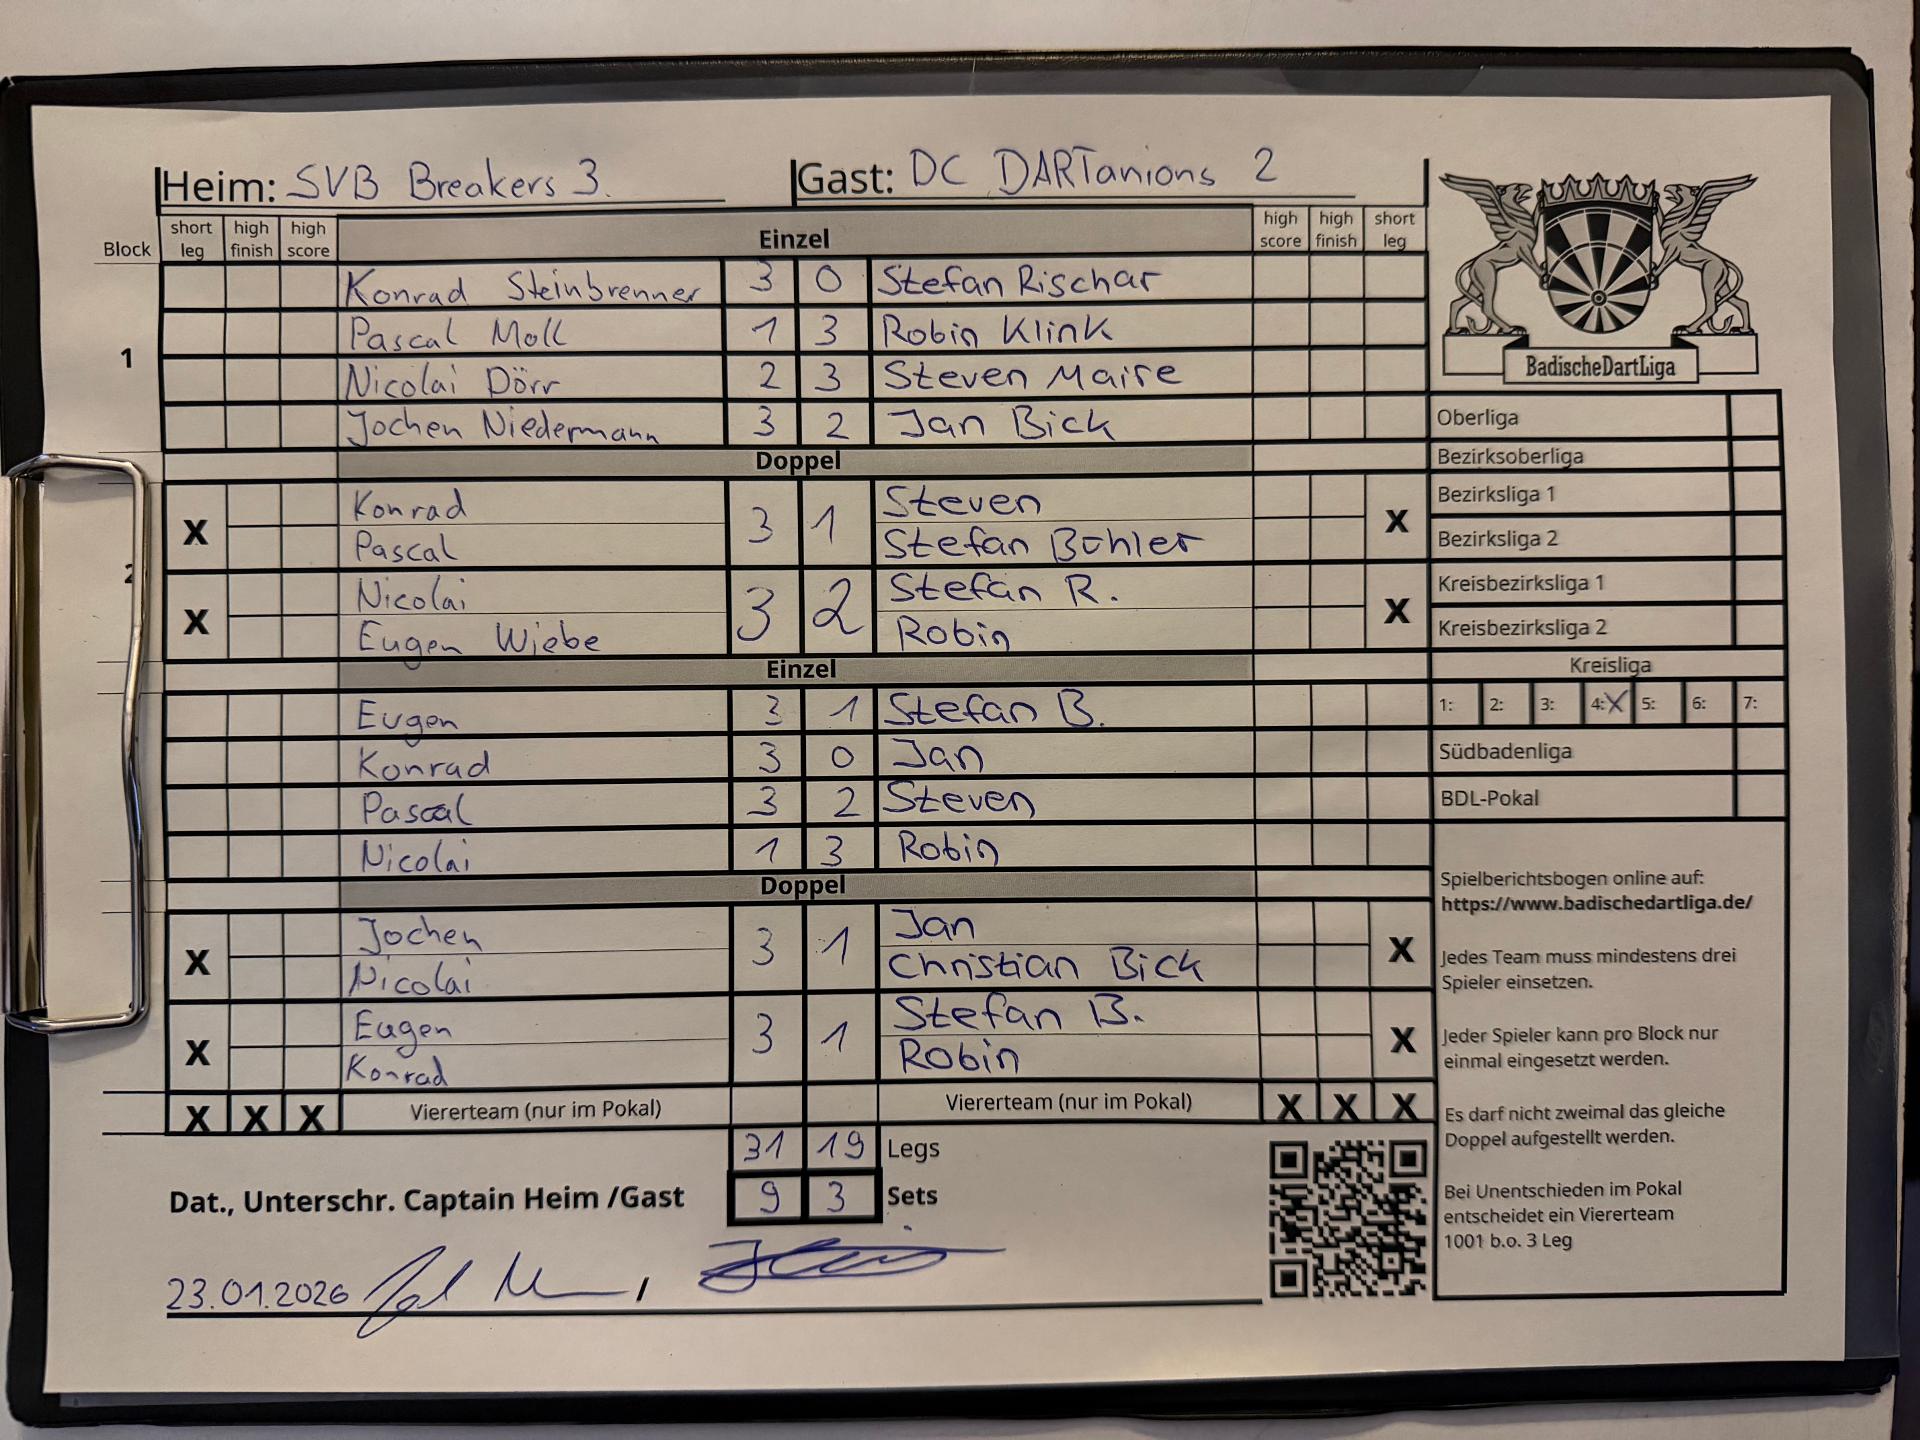 Heim: SVB Breakers 3. Gast: DC DARTanions 2
Block short leg high finish high score Einzel high score high finish short leg
1
Konrad Steinbrenner 3 0 Stefan Rischar
Pascal Moll 1 3 Robin Klink
Nicolai Dörr 2 3 Steven Maire
Jochen Niedermann 3 2 Jan Bick
Doppel
2
X Konrad 3 1 Steven X
Pascal Stefan Bohler
X Nicolai 3 2 Stefan R. X
Eugen Wiebe Robin
Einzel
Eugen 3 1 Stefan B.
Konrad 3 0 Jan
Pascal 3 2 Steven
Nicolai 1 3 Robin
Doppel
X Jochen 3 1 Jan X
Nicolai Christian Bick
X Eugen 3 1 Stefan B. X
Konrad Robin
X X X Viererteam (nur im Pokal) Viererteam (nur im Pokal) X X X
31 19 Legs
Dat., Unterschr. Captain Heim /Gast 9 3 Sets
23.01.2026 ,
BadischeDartLiga
Oberliga
Bezirksoberliga
Bezirksliga 1
Bezirksliga 2
Kreisbezirksliga 1
Kreisbezirksliga 2
Kreisliga
1: 2: 3: 4:X 5: 6: 7:
Südbadenliga
BDL-Pokal
Spielberichtsbogen online auf:
https://www.badischedartliga.de/
Jedes Team muss mindestens drei
Spieler einsetzen.
Jeder Spieler kann pro Block nur
einmal eingesetzt werden.
Es darf nicht zweimal das gleiche
Doppel aufgestellt werden.
Bei Unentschieden im Pokal
entscheidet ein Viererteam
1001 b.o. 3 Leg